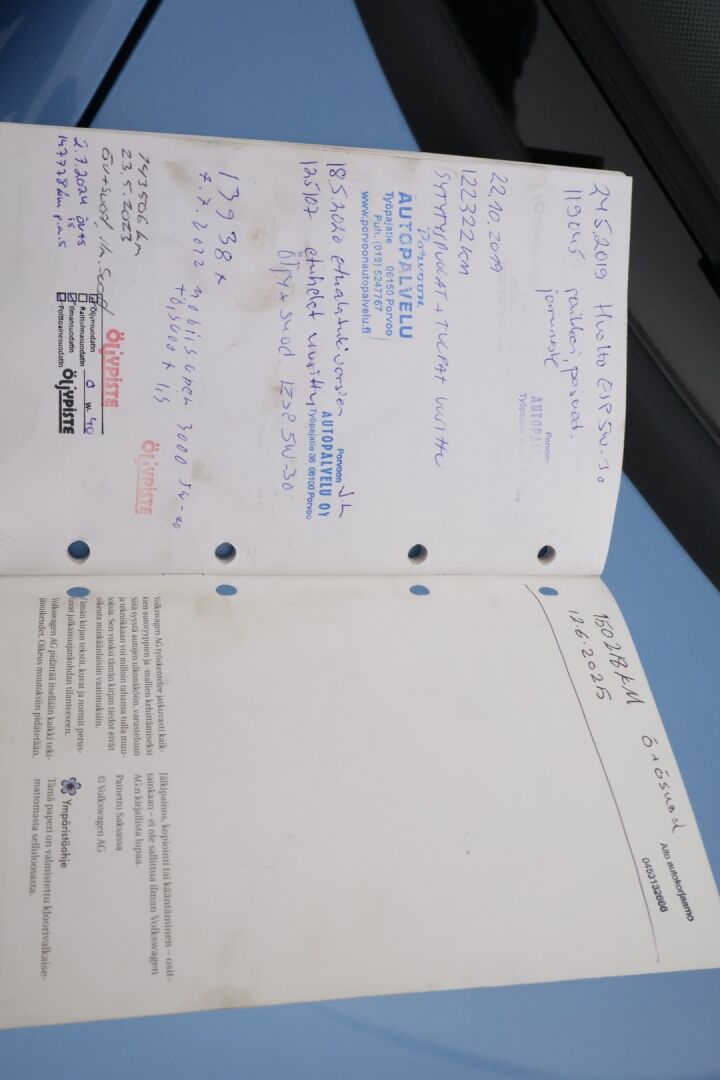 24.5.2019 Huolto ESP 5W-30
119045
jarruneste
Porvoon
AUTOPAL
22.10.2019
122322 KM
SYTYTYPUOLAT + TULPAT UUSITTU
Porvoon
AUTOPALVELU
Työpajatie 06150 Porvoo
Puh. (019) 5247767
www.porvoonautopalvelu.fi
18.5.2020 etualatukivarsien
125107 etuhelat uusittu
Öljy + suod. ESP 5W-30
J.L
Porvoon
AUTOPALVELU OY
Työpajatie 36 06100 Porvoo
4.7.2022 mobil super 3000 5W-40
ÖLJYPISTE
143506 km
23.5.2023
ÖV+suod, ilm.suod
ÖLJYPISTE
2.7.2024 ÖV+S
147778km
Öljynsuodatin
Raitisilmasuodatin
Ilmansuodatin
Polttoainesuodatin
0 W- 40
ÖLJYPISTE
150218 KM Ö + Ösuod
12.6.2025
Aito autokorjaamo
0453132666
Volkswagen AG työskentelee jatkuvasti kaik-
kien autotyyppien ja -mallien kehittämiseksi
Siitä syystä autojen ulkonäköön, varusteluun
ja tekniikkaan voi milloin tahansa tulla muu-
toksia. Sen vuoksi tämän kirjan tiedot eivät
oikeuta minkäänlaisiin vaatimuksiin.
Tämän kirjan tekstit, kuvat ja normit perus-
tuvat julkaisuajankohdan tilanteeseen.
Volkswagen AG pidättää itsellään kaikki teki-
jänoikeudet. Oikeus muutoksiin pidätetään.
Jälkipainos, kopiointi tai kääntäminen – osit-
tainkaan – ei ole sallittua ilman Volkswagen
AG:n kirjallista lupaa.
Painettu Saksassa
© Volkswagen AG
Ympäristöohje
Tämä paperi on valmistettu kloorivalkaise-
mattomasta selluloosasta.